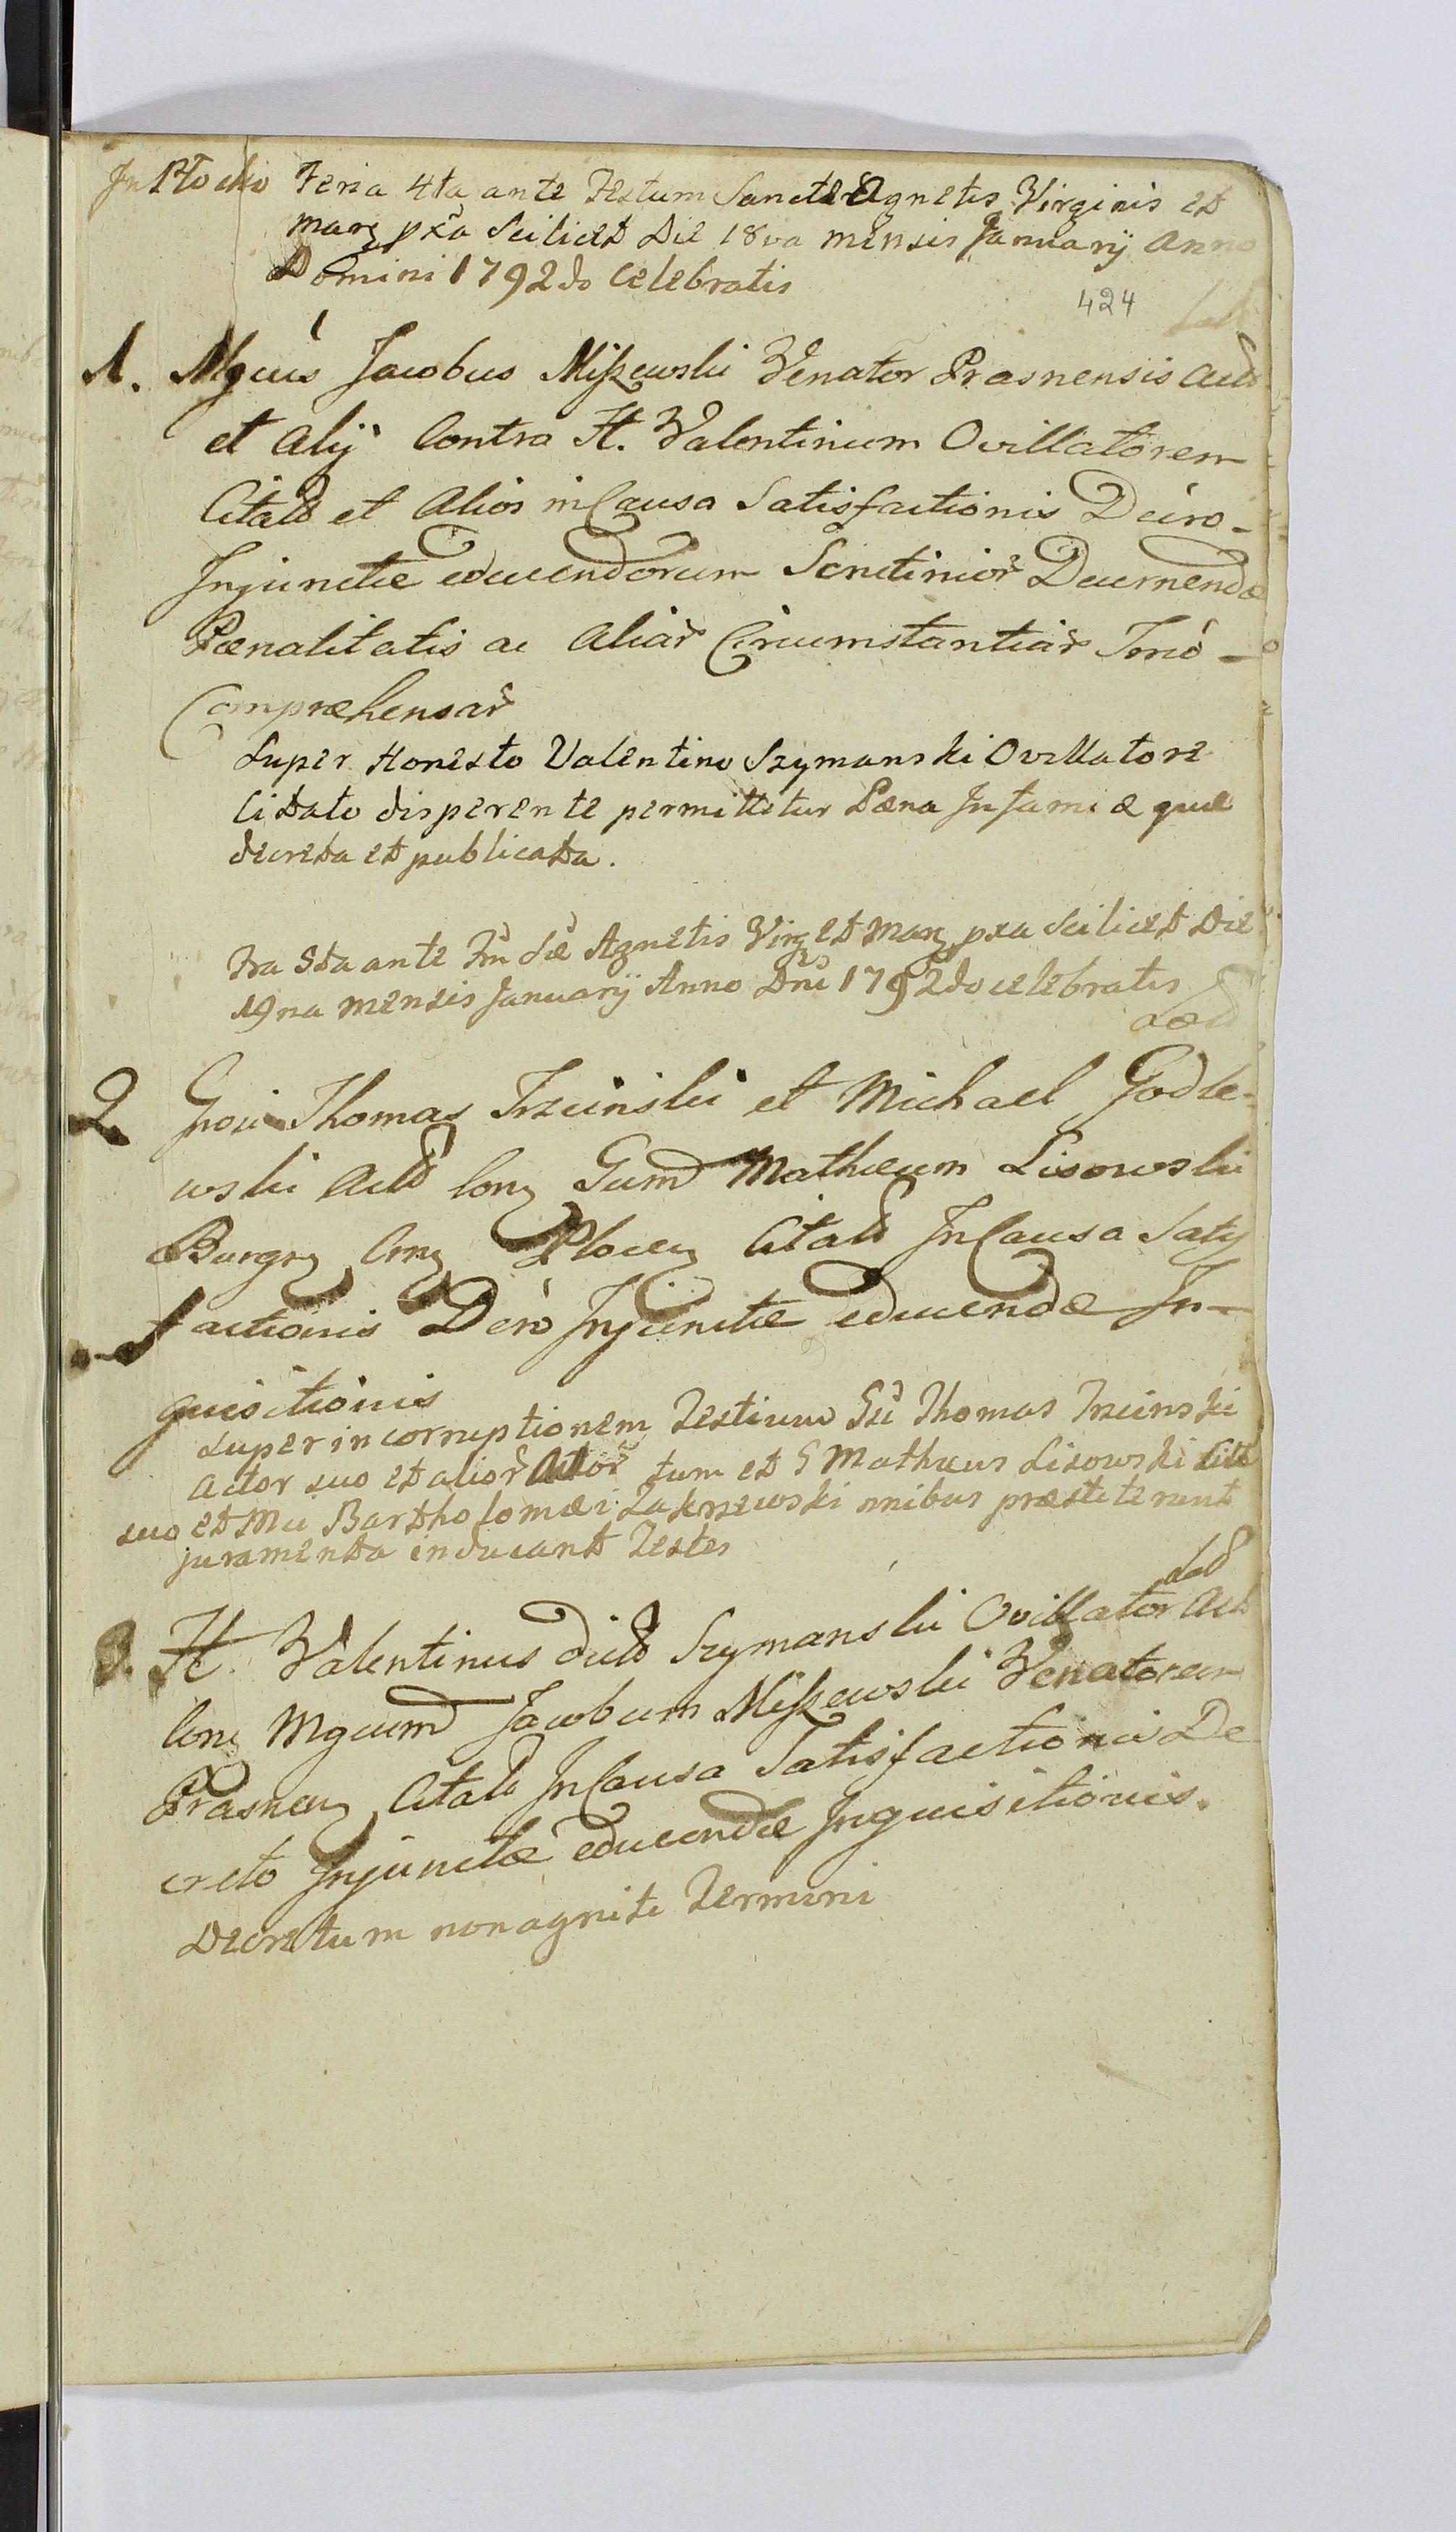 In Płocko Feria 4ta ante Festum Sanctæ Agnetis Virginis et
Marz pxa Scilicet Die 18va mensis January Anno
Domini 1792do Celebratis
424
1. Mgcus Jacobus Miszewski Venator Prasnensis Actō
et Alij Contra H. Valentinum Ovillatorem
Citatō et Alios in Causa Satisfactionis Decro-
Injunctæ educendorum Scrutinior Decernendæ
Pænalitatis ac Aliar Circumstantiar Tmo-
Compræhensar
Super Honesto Valentino Szymanski Ovillatore
Citato disperente permittitur Pæna Infamiæ que
decreta et publicata.
Fra 5ta ante Fm Sæ Agnetis Virg et Marz pxa Scilicet Die
19na mensis January Anno Dni 1792do celebratis
2 Gnosi Thomas Trzcinski et Michael Godle-
wski Actō Conz Gumd Mathæum Lisowski
Burgrz Crrz Plocenz Citatō In Causa Satis
factionis Decro Injunctæ educendæ In-
quisitionis
super incorruptionem Testium Gsi Thomas Trzcinski
Actor suo et alior Actor tum et G Mathæus Lisowski Citt
suo et Mci Bartholomæi Zakrzewski nnibus præstiterunt
juramenta inducant Testes
3. H. Valentinus dictō Szymanski Ovillator Actō
Conz Mgcumd Jacobum Miszewski Venatorem
Prasnenz Citatō In Causa Satisfactionis De
creto Injunctæ educendæ Inquisitionis.
Decretum non agniti Termini